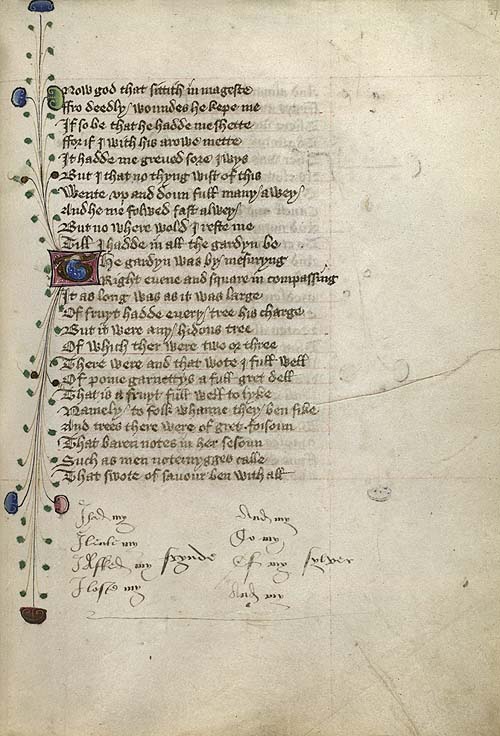 Now god that sittith in mageste
ffro deedly woundes he kepe me
If so be that he hadde me shette
ffor if I with his arowe mette
It hadde me greued sore iwys
But I that no thyng wist of this
Wente vp and doun full many a wey
And he me folwed fast alwey
But no where wold I reste me
Till I hadde in all the gardyn be
The gardyn was by mesuryng
Right euene and square in compassing
It as long was as it was large
Of fruyt hadde euery tree his charge
But it were any hidous tree
Of which ther were two or three
There were and that wote I full well
Of pome garnettys a full gret dell
That is a fruyt full well to lyke
Namely to folk whanne they ben sike
And trees there were of gret foisoun
That baren notes in her sesoun
Such as men notemygges calle
That swote of sauour ben with all
I had my And my
I leale my To my
I Asked my frynde Of my sylver
I loste my And my